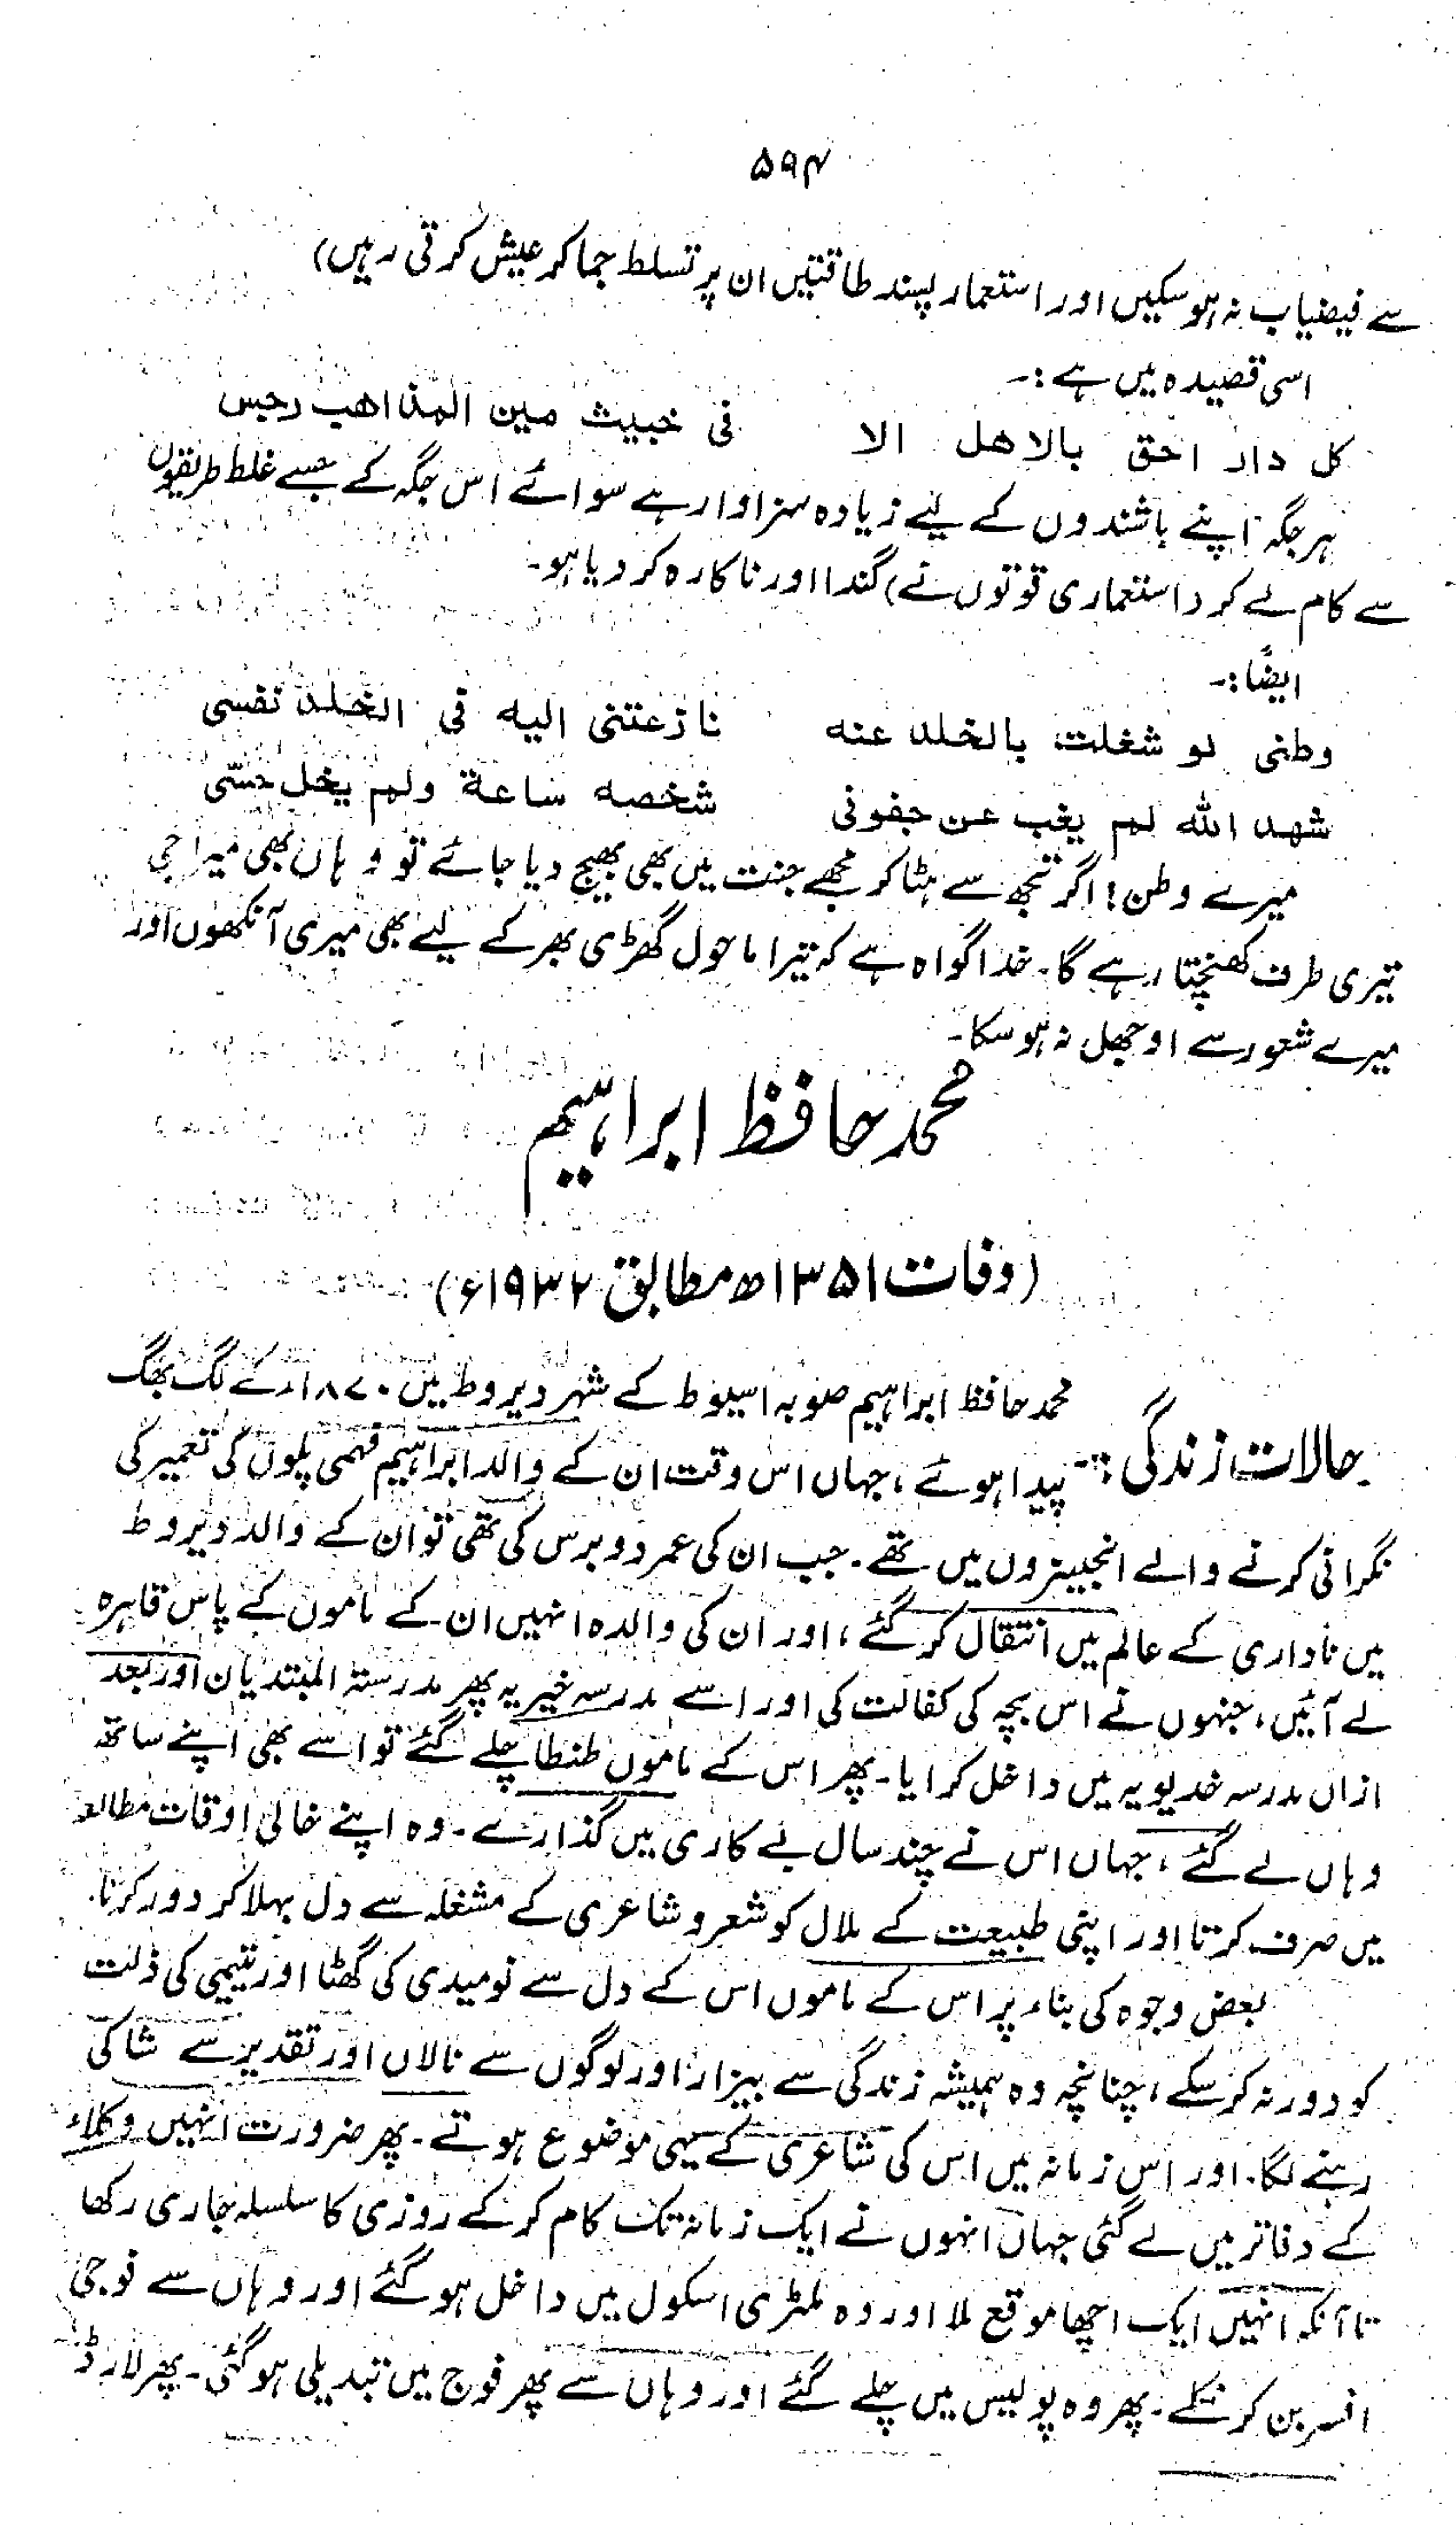 ۵۹۴
سے فیضیاب نہ ہو سکیں اور استعمار پسند طاقتیں ان پر تسلط جما کر عیش کرتی رہیں)
اسی قصیدہ میں ہے :۔
کل دار احق بالاهل الا فی خبیث مین المذاهب رجس
ہر جگہ اپنے باشندوں کے لیے زیادہ سزاوار ہے سوائے اس جگہ کے جسے غلط طریقوں
سے کام لے کر (استعماری قوتوں نے) گندا اور ناکارہ کر دیا ہو۔
ایضًا :۔
وطنی لو شغلت بالخلد عنه نازعتنی الیه فی الخلد نفسی
شهد الله لم یغب عن جفونی شخصه ساعة ولم یخل حسّی
میرے وطن! اگر تجھ سے ہٹا کر مجھے جنت میں بھی بھیج دیا جائے تو وہاں بھی میرا جی
تیری طرف کھنچتا رہے گا۔ خدا گواہ ہے کہ تیرا ماحول گھڑی بھر کے لیے بھی میری آنکھوں اور
میرے شعور سے اوجھل نہ ہو سکا۔
محمد حافظ ابراہیم
(وفات ۱۳۵۱ھ مطابق ۱۹۳۲ء)
محمد حافظ ابراہیم صوبہ اسیوط کے شہر دیروط میں ۱۸۷۰ء کے لگ بھگ
حالات زندگی :۔ پیدا ہوئے، جہاں اس وقت ان کے والد ابراہیم فہمی پلوں کی تعمیر کی
نگرانی کرنے والے انجینیروں میں تھے۔ جب ان کی عمر دو برس کی تھی تو ان کے والد دیروط
میں ناداری کے عالم میں انتقال کر گئے، اور ان کی والدہ انہیں ان کے ماموں کے پاس قاہرہ
لے آئیں، جنہوں نے اس بچہ کی کفالت کی اور اسے مدرسہ خیریہ پھر مدرستہ المبتدیان اور بعد
ازاں مدرسہ خدیویہ میں داخل کرایا۔ پھر اس کے ماموں طنطا چلے گئے تو اسے بھی اپنے ساتھ
وہاں لے گئے، جہاں اس نے چند سال بے کاری میں گذارے۔ وہ اپنے خالی اوقات مطالعہ
میں صرف کرتا اور اپنی طبیعت کے ملال کو شعر و شاعری کے مشغلہ سے دل بہلا کر دور کرتا۔
بعض وجوہ کی بناء پر اس کے ماموں اس کے دل سے نومیدی کی گھٹا اور یتیمی کی ذلت
کو دور نہ کر سکے، چنانچہ وہ ہمیشہ زندگی سے بیزار اور لوگوں سے نالاں اور تقدیر سے شاکی
رہنے لگا۔ اور اس زمانہ میں اس کی شاعری کے یہی موضوع ہوتے۔ پھر ضرورت انہیں وکلاء
کے دفاتر میں لے گئی جہاں انہوں نے ایک زمانہ تک کام کر کے روزی کا سلسلہ جاری رکھا
تا آنکہ انہیں ایک اچھا موقع ملا اور وہ ملٹری اسکول میں داخل ہو گئے اور وہاں سے فوجی
افسر بن کر نکلے۔ پھر وہ پولیس میں چلے گئے اور وہاں سے پھر فوج میں تبدیلی ہو گئی۔ پھر لارڈ